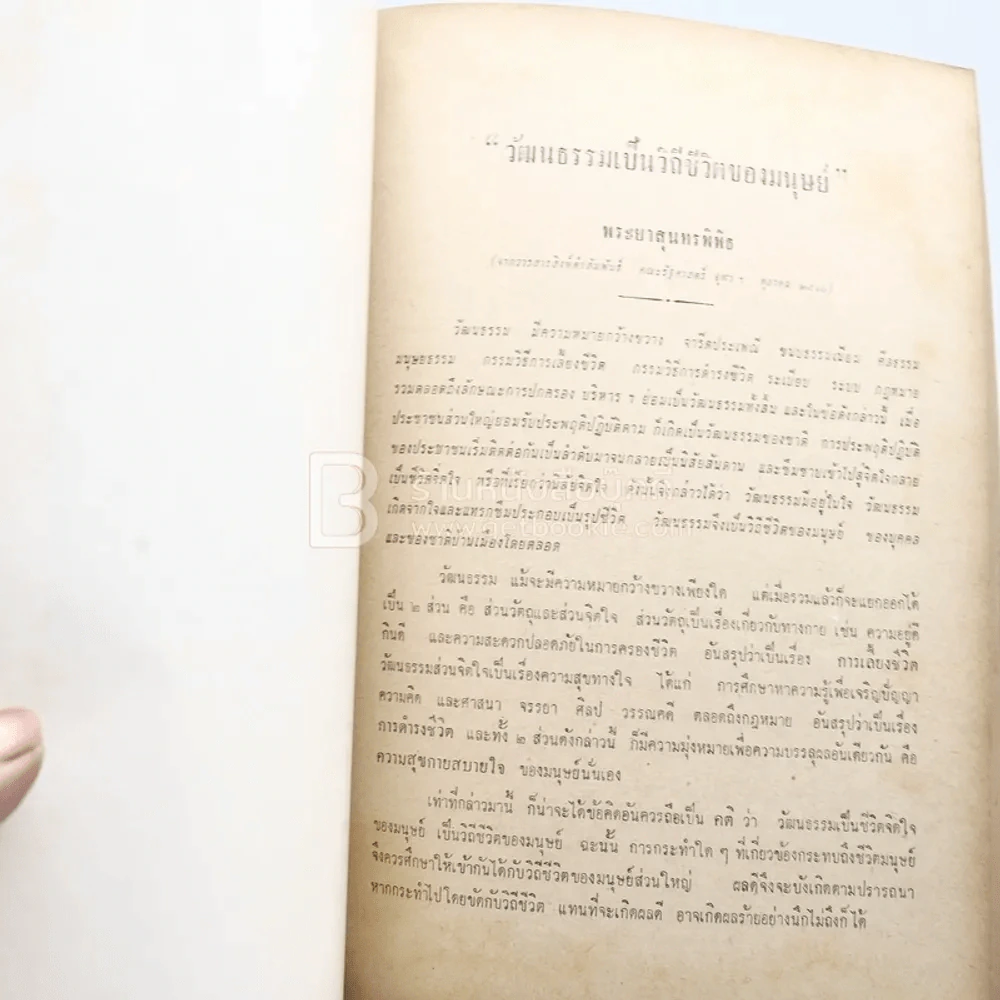 " วัฒนธรรมเป็นวิถีชีวิตของมนุษย์ "
พระยาสุนทรพิพิธ
(จากวารสารสิงห์ดำสัมพันธ์ คณะรัฐศาสตร์ จุฬา ฯ ตุลาคม
วัฒนธรรม มีความหมายกว้างขวาง จารีตประเพณี ขนบธรรมเนียม ศีลธรรม
มนุษยธรรม กรรมวิธีการเลี้ยงชีวิต กรรมวิธีการดำรงชีวิต ระเบียบ ระบบ กฎหมาย
รวมตลอดถึงลักษณะการปกครอง บริหาร ฯ ย่อมเป็นวัฒนธรรมทั้งสิ้น และในข้อดังกล่าวนี้ เมื่อ
ประชาชนส่วนใหญ่ยอมรับประพฤติปฏิบัติตาม ก็เกิดเป็นวัฒนธรรมของชาติ การประพฤติปฏิบัติ
ของประชาชนเริ่มติดต่อกันเป็นลำดับมาจนกลายเป็นนิสัยสันดาน และซึมซาบเข้าไปสู่จิตใจกลาย
เป็นชีวิตจิตใจ หรือที่เรียกว่านิสัยจิตใจ ดังนั้นจึงกล่าวได้ว่า วัฒนธรรมมีอยู่ในใจ วัฒนธรรม
เกิดจากใจและแทรกซึมประกอบเป็นรูปชีวิต วัฒนธรรมจึงเป็นวิถีชีวิตของมนุษย์ ของบุคคล
และของชาติบ้านเมืองโดยตลอด
วัฒนธรรม แม้จะมีความหมายกว้างขวางเพียงใด แต่เมื่อรวมแล้วก็จะแยกออกได้
เป็น ๒ ส่วน คือ ส่วนวัตถุและส่วนจิตใจ ส่วนวัตถุเป็นเรื่องเกี่ยวกับทางกาย เช่น ความอยู่ดี
กินดี และความสะดวกปลอดภัยในการครองชีวิต อันสรุปว่าเป็นเรื่อง การเลี้ยงชีวิต
วัฒนธรรมส่วนจิตใจเป็นเรื่องความสุขทางใจ ได้แก่ การศึกษาหาความรู้เพื่อเจริญปัญญา
ความคิด และศาสนา จรรยา ศิลป วรรณคดี ตลอดถึงกฎหมาย อันสรุปว่าเป็นเรื่อง
การดำรงชีวิต และทั้ง ๒ ส่วนดังกล่าวนี้ ก็มีความมุ่งหมายเพื่อความบรรลุผลอันเดียวกัน คือ
ความสุขกายสบายใจ ของมนุษย์นั่นเอง
เท่าที่กล่าวมานี้ ก็น่าจะได้ข้อคิดอันควรถือเป็น คติ ว่า วัฒนธรรมเป็นชีวิตจิตใจ
ของมนุษย์ เป็นวิถีชีวิตของมนุษย์ ฉะนั้น การกระทำใด ๆ ที่เกี่ยวข้องกระทบถึงชีวิตมนุษย์
จึงควรศึกษาให้เข้ากันได้กับวิถีชีวิตของมนุษย์ส่วนใหญ่ ผลดีจึงจะบังเกิดตามปรารถนา
หากกระทำไปโดยขัดกับวิถีชีวิต แทนที่จะเกิดผลดี อาจเกิดผลร้ายอย่างนึกไม่ถึงก็ได้
ร้านหนังสือบุ๊คกี้
www.getbookie.com